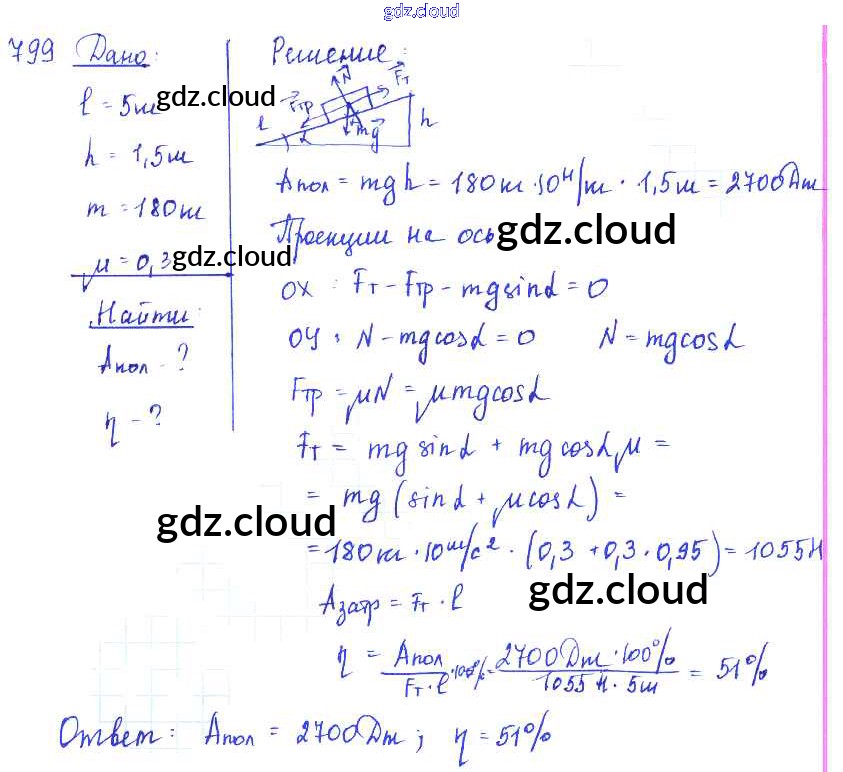 gdz.cloud
799 Дано:
l = 5м
gdz.cloud
h = 1,5м
m = 180кг
μ = 0,3
gdz.cloud
Найти:
Aпол - ?
η - ?
Решение:
N Fт
Fтр
l α mg h
Aпол = mgh = 180кг · 10 Н/кг · 1,5м = 2700Дж
Проекции на ось
gdz.cloud
OX : Fт - Fтр - mg sinα = 0
OY : N - mg cosα = 0 N = mg cosα
Fтр = μN = μmg cosα
Fт = mg sinα + mg cosα μ =
= mg (sinα + μ cosα) =
gdz.cloud
= 180кг · 10 м/с² · (0,3 + 0,3 · 0,95) = 1055Н
gdz.cloud
Aзатр = Fт · l
η = Aпол / Fт · l · 100% = 2700Дж · 100% / 1055 Н · 5м = 51%
Ответ: Aпол = 2700Дж; η = 51%